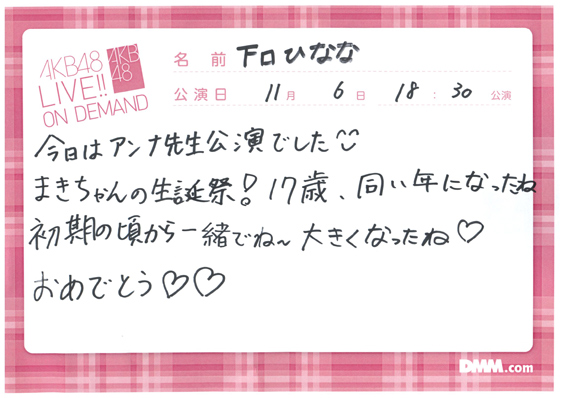 AKB48
LIVE!!
ON DEMAND
AKB
48
名 前 下口ひなな
公演日 11月 6日 18:30 公演
今日はアンナ先生公演でした
まきちゃんの生誕祭!17歳、同い年になったね
初期の頃から一緒でね~大きくなったね♡
おめでとう♡♡
DMM.com